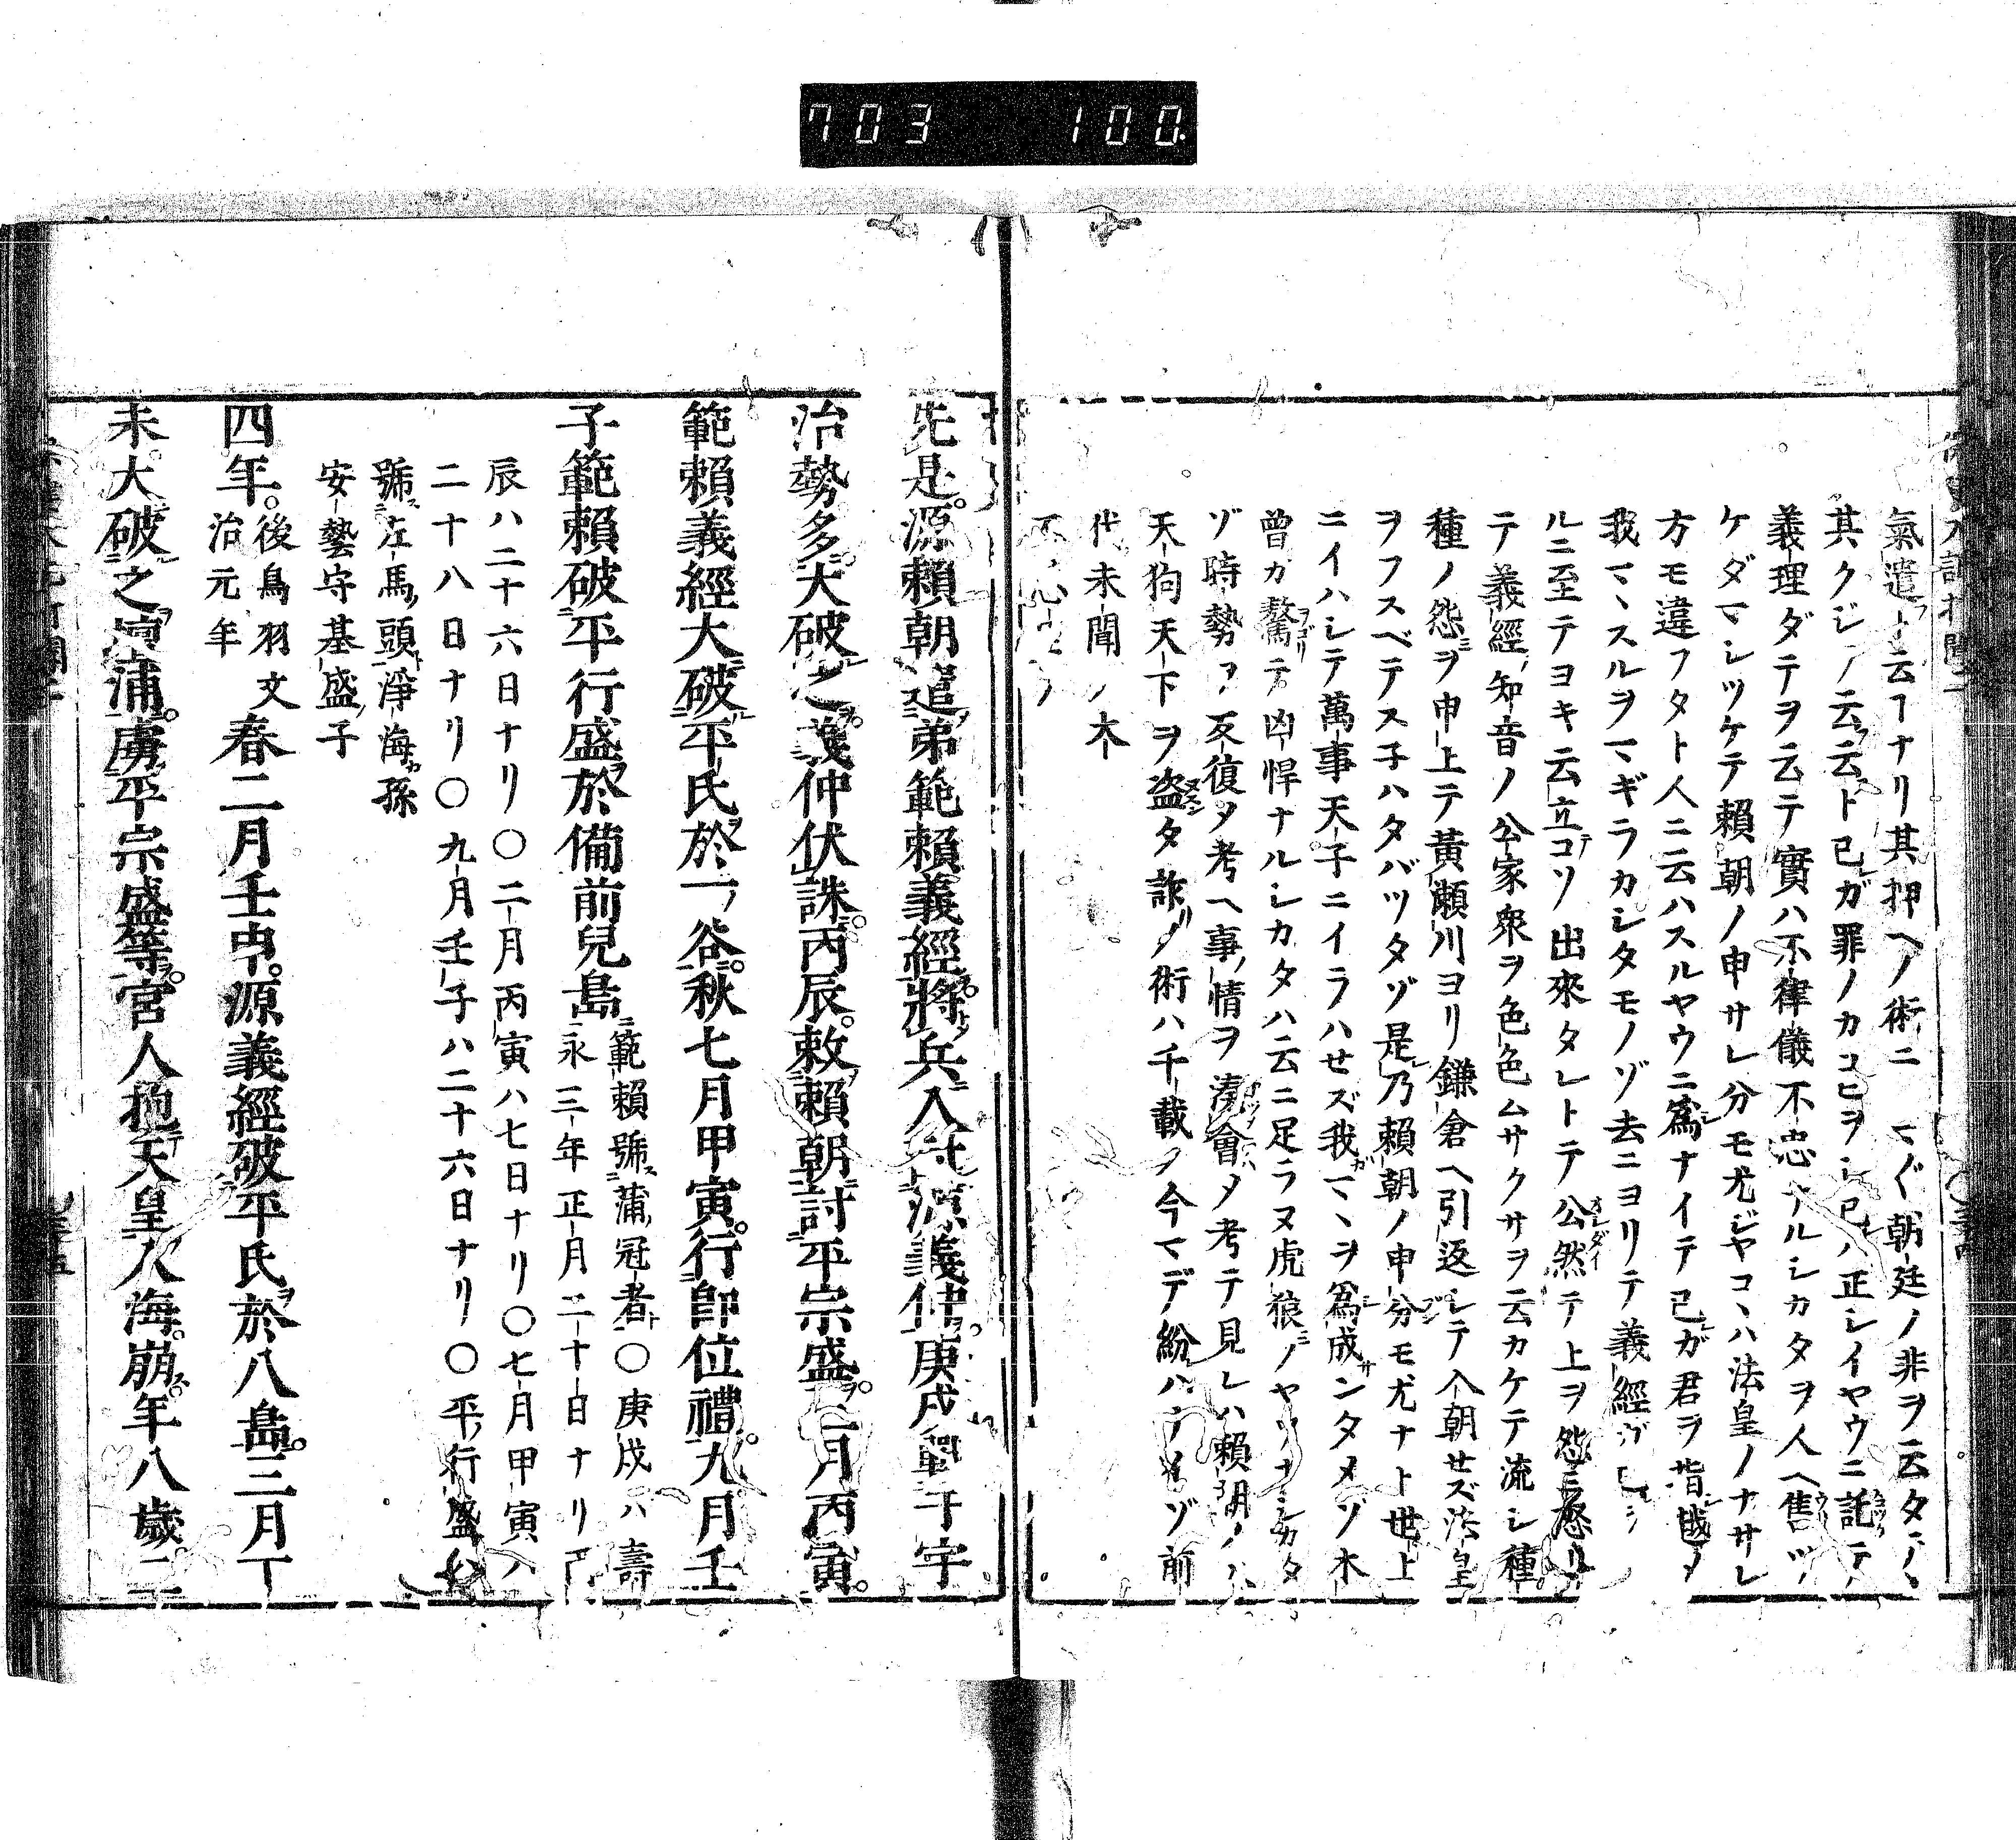 703 100
氣遣ト云フナリ其押ヘノ術ニ朝廷ノ非ヲ云タ
其クジノ云云ト己ガ罪ノカコヒヲシ己ハ正シイヤウニ託テ
義理ダテヲ云テ實ハ不律儀不忠ナルシカタヲ人ヘ售ツ
ケダマシツケテ賴朝ノ申サレ分モ尤ジヤコヽハ法皇ノナサレ
方モ違フタト人ニ云ハスルヤウニ爲ナイテ己ガ君ヲ指
我マヽスルヲマギラカシタモノゾ去ニヨリテ義經ガ
ルニ至テヨキ云立コソ出來タレトテ公然テ上ヲ怨ミ怒リ
テ義經知音ノ公家衆ヲ色色ムサクサヲ云カケテ流シ種
種ノ怨ヲ申上テ黄瀬川ヨリ鎌倉ヘ引返シテ入朝セズ法皇
ヲフスベテス子ハタバツタゾ是乃賴朝ノ申分モ尤ナト世上
ニイハシテ萬事天子ニイラハセズ我マヽヲ爲成ンタメゾ木
曾ガ驁テ凶悍ナルシカタハ云ニ足ラヌ虎狼ノヤウナシカタ
ゾ時勢ノ反復ヲ考ヘ事情ヲ湊會メ考テ見レハ賴朝ノ
天狗天下ヲ盜タ詐リノ術ハ千載ノ今マデ紛ハシイゾ前
代未聞ノ大
先是源賴朝遣弟範賴義經將兵入討源義仲庚戌戰于宇
治勢多大破之義仲伏誅丙辰敕賴朝討平宗盛二月丙寅
範賴義經大破平氏於一谷秋七月甲寅行卽位禮九月壬
子範賴破平行盛於備前兒島範賴號蒲冠者〇庚戌ハ壽
永三年正月二十日ナリ丙
辰ハ二十六日ナリ〇二月丙寅ハ七日ナリ〇七月甲寅ハ
二十八日ナリ〇九月壬子ハ二十六日ナリ〇平行盛
號左馬頭淨海孫
安藝守基盛子
四年後鳥羽文
治元年春二月壬申源義經破平氏於八島三月丁
未大破之壇浦虜平宗盛等宮人抱天皇入海崩年八歲二